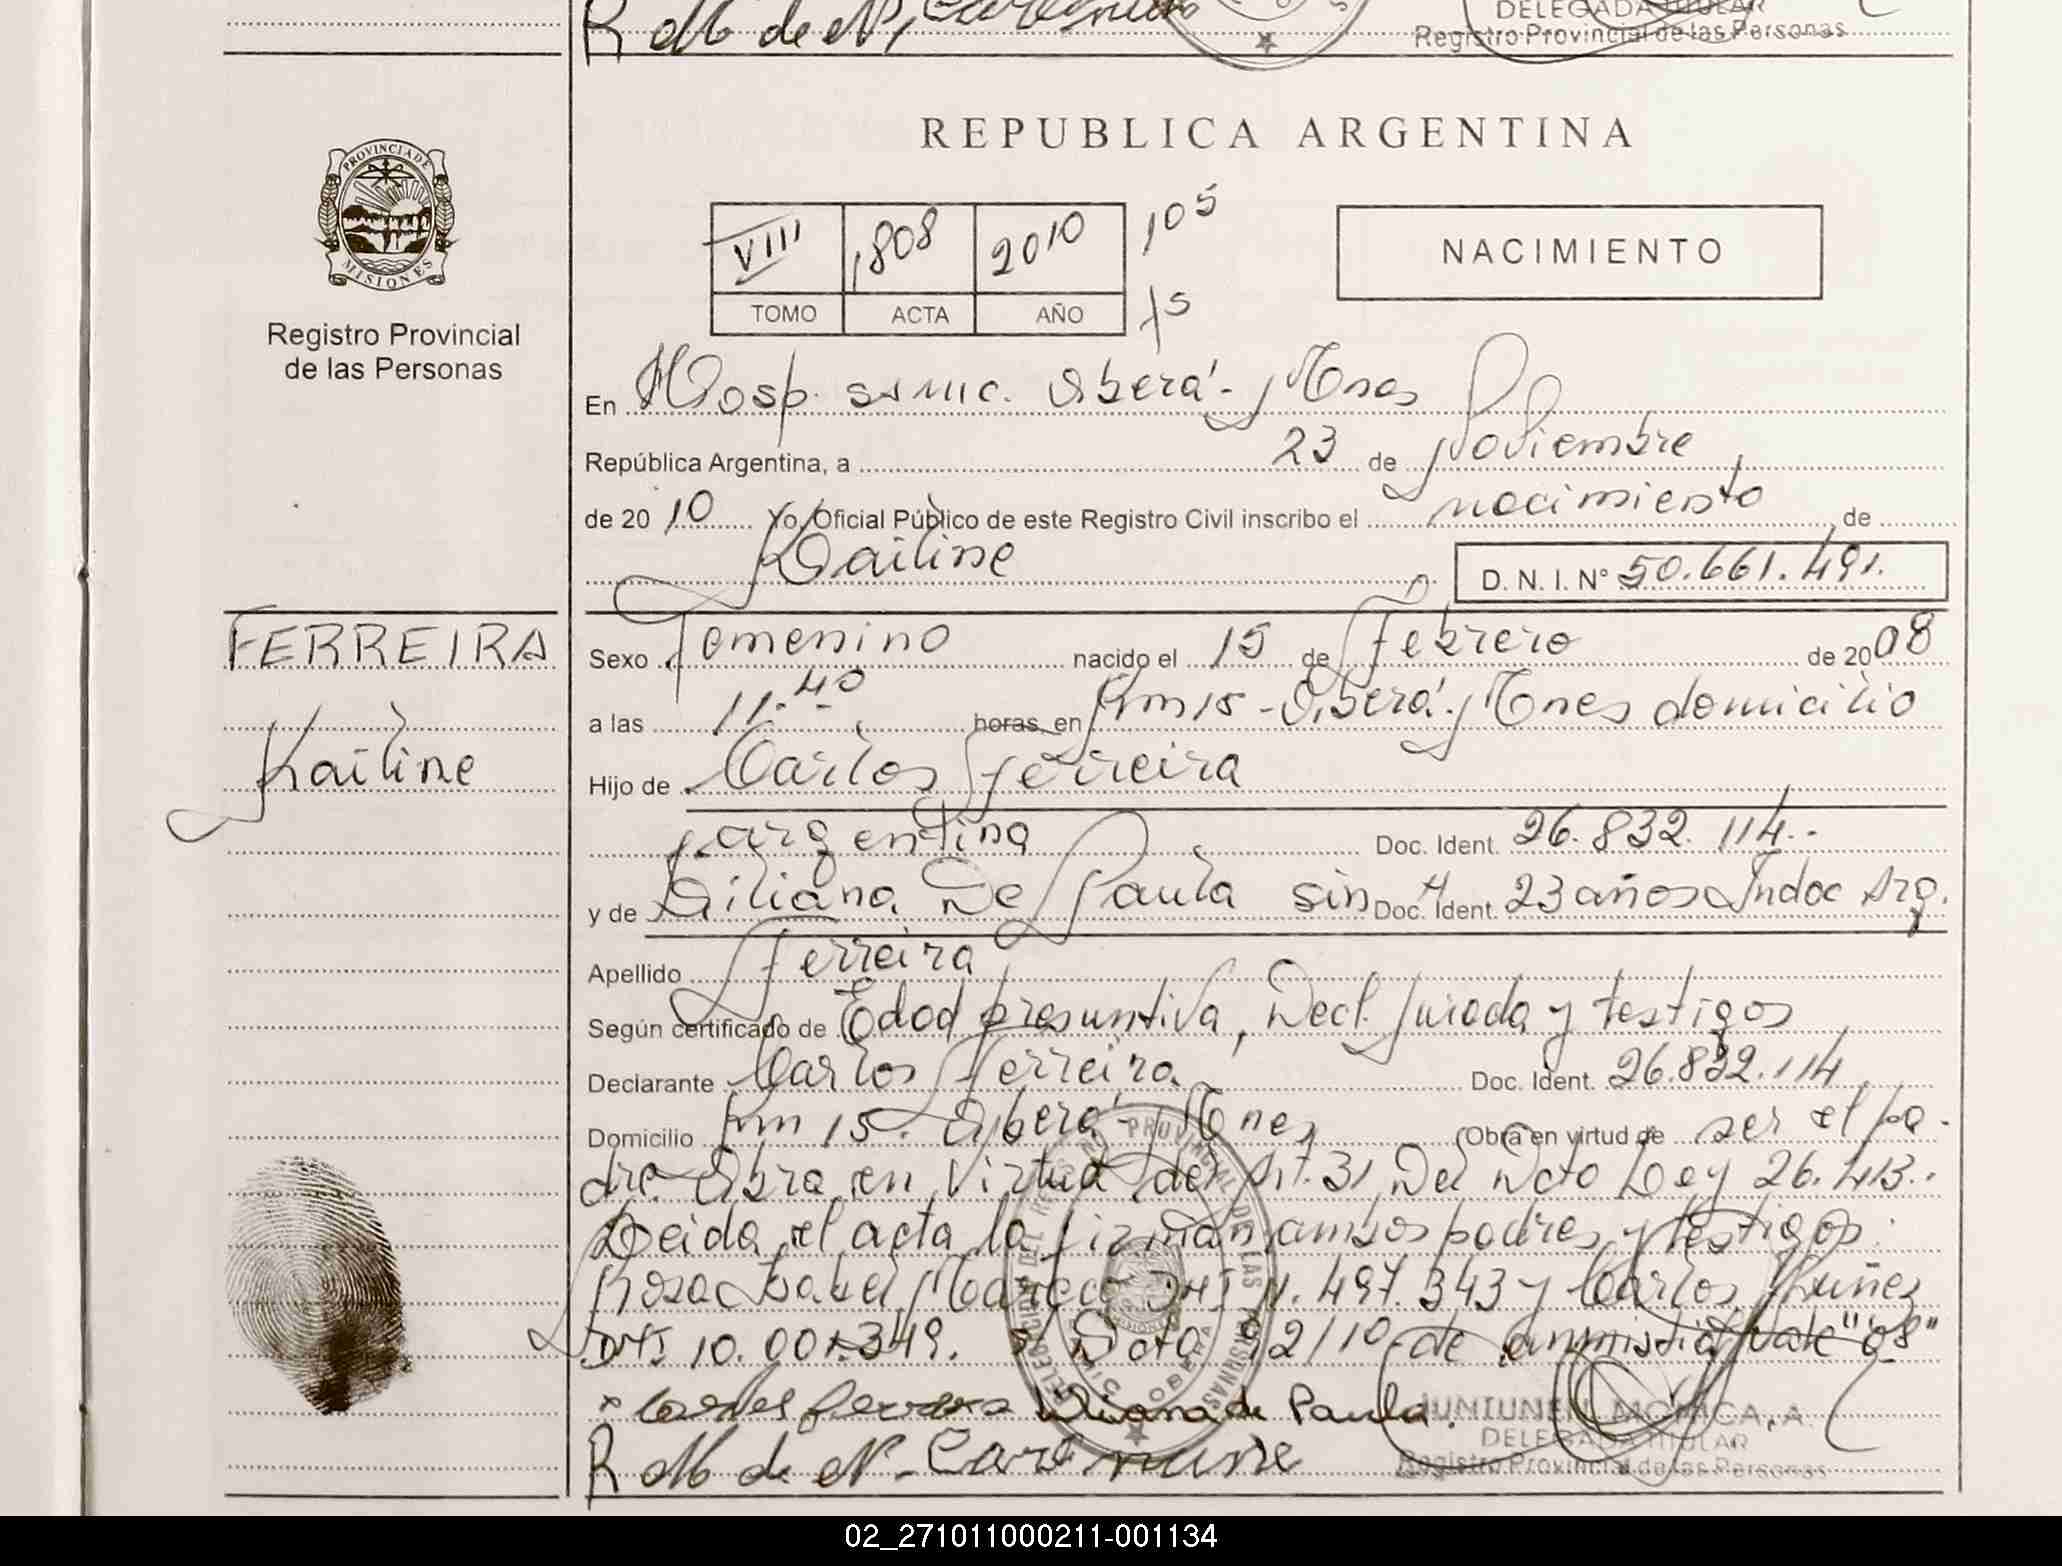 R M de N, Care
DELEGADA TITULAR
Registro Provincial de las Personas
PROVINCIA DE
MISIONES
Registro Provincial
de las Personas
REPUBLICA ARGENTINA
VIII 1808 2010 105
TOMO ACTA AÑO 15
NACIMIENTO
En Hosp. SAMIC. Oberá - Mnes
República Argentina, a 23 de Noviembre
de 20 10 Yo, Oficial Público de este Registro Civil inscribo el nacimiento de
Kailine D. N. I. N° 50.661.491.
FERREIRA
Kailine
Sexo Femenino nacido el 15 de Febrero de 20 08
a las 11.40 horas, en Km 15 - Oberá - Mnes domicilio
Hijo de Carlos Ferreira
argentino Doc. Ident. 26.832.114.-
y de Liliana De Paula sin Doc. Ident. 23 años Indoc Arg.
Apellido Ferreira
Según certificado de Edad presuntiva, Decl. Jurada y testigos
Declarante Carlos Ferreira Doc. Ident. 26.832.114
Domicilio Km 15. Oberá - Mnes Obra en virtud de ser el pa-
dre. Obra en Virtud del Art. 31 Del Dcto Ley 26.413..
Leida el acta la firman ambos padres y testigos:
Rosa Isabel DNI 11.497.343 y Carlos Nuñes
DNI. 10.001.349. Dcto 92/10 de ammistia Vale "08"
x Carlos ferreira Liliana de Paula.
JUNIUNEN, MONICA. A
DELEGADA TITULAR
R M de N - Carlo nuñe
Registro Provincial de las Personas
02_271011000211-001134